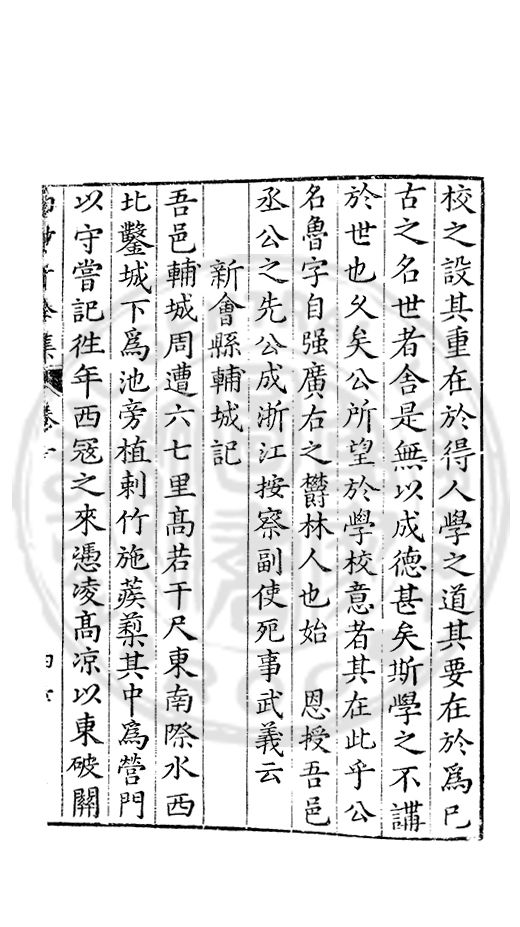 校之設其重在於得人學之道其要在於爲已
古之名世者舎是無以成德甚矣斯學之不講
於世也久矣公所望於學校意者其在此乎公
名魯字自强廣右之欝林人也始　恩授吾邑
丞公之先公成浙江按察副使死事武義云
新會縣輔城記
吾邑輔城周遭六七里髙若干尺東南際水西
北鑿城下爲池旁植刺竹施蒺藜其中爲營門
以守嘗記徃年西冦之來憑凌髙凉以東破關